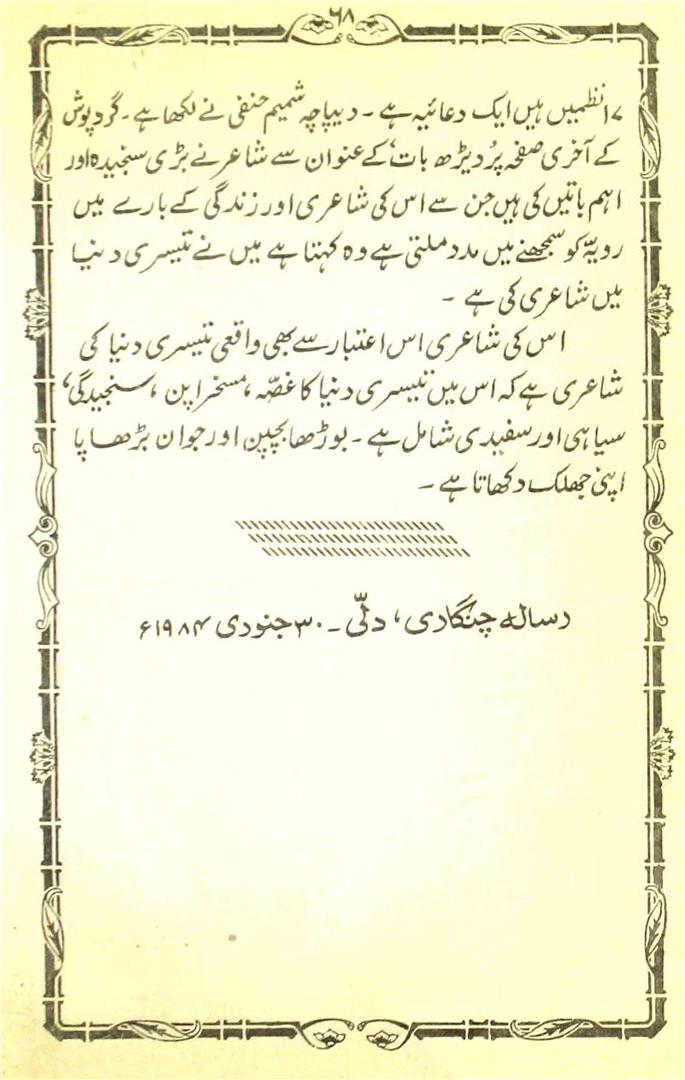 ۶۸
۱۷ نظمیں ہیں ایک دعائیہ ہے ۔ دیباچہ شمیم حنفی نے لکھا ہے ۔ گرد پوش
کے آخری صفحہ پر ’ڈیڑھ بات‘ کے عنوان سے شاعر نے بڑی سنجیدہ اور
اہم باتیں کی ہیں جن سے اس کی شاعری اور زندگی کے بارے میں
رویہّ کو سمجھنے میں مدد ملتی ہے وہ کہتا ہے میں نے تیسری دنیا
میں شاعری کی ہے ۔
اس کی شاعری اس اعتبار سے بھی واقعی تیسری دنیا کی
شاعری ہے کہ اس میں تیسری دنیا کا غصّہ ، مسخراپن ، سنجیدگی ،
سیاہی اور سفیدی شامل ہے ۔ بوڑھا بچپن اور جوان بڑھاپا
اپنی جھلک دکھاتا ہے ۔
رسالہ چنگاری ، دلّی ۔ ۳۰ جنوری ۱۹۸۴ء